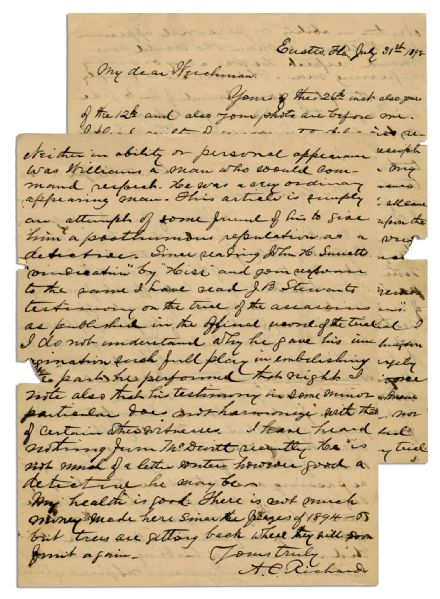 Eustis, Fla, July 31st 1898
My dear Weichman.
Yours of the 26th inst also yours
of the 12th and also your photo are before me.
Neither in ability or personal appearance
was Williams a man who would com-
mand respect. He was a very ordinary
appearing man. This article is simply
an attempt of some friend of his to give
him a posthumous reputation as a
detective. Since reading John H. Surratt
vindication by "Hisi" and your response
to the same I have read J.B. Stewarts
testimony on the trial of the assassins
as published in the Official record of the trial
I do not understand why he gave his im-
agination such full play in embelishing
the part he performed that night I
note also that his testimony in some minor
particular does not harmonize with that
of certain other witnesses. I have heard
nothing from McDevitt recently He is
not much of a letter writer however good a
detective he may be.
My health is good There is not much
money made here since the freezes of 1894-95
but trees are getting back where they will soon
fruit again.
Yours truly.
A. C. Richards